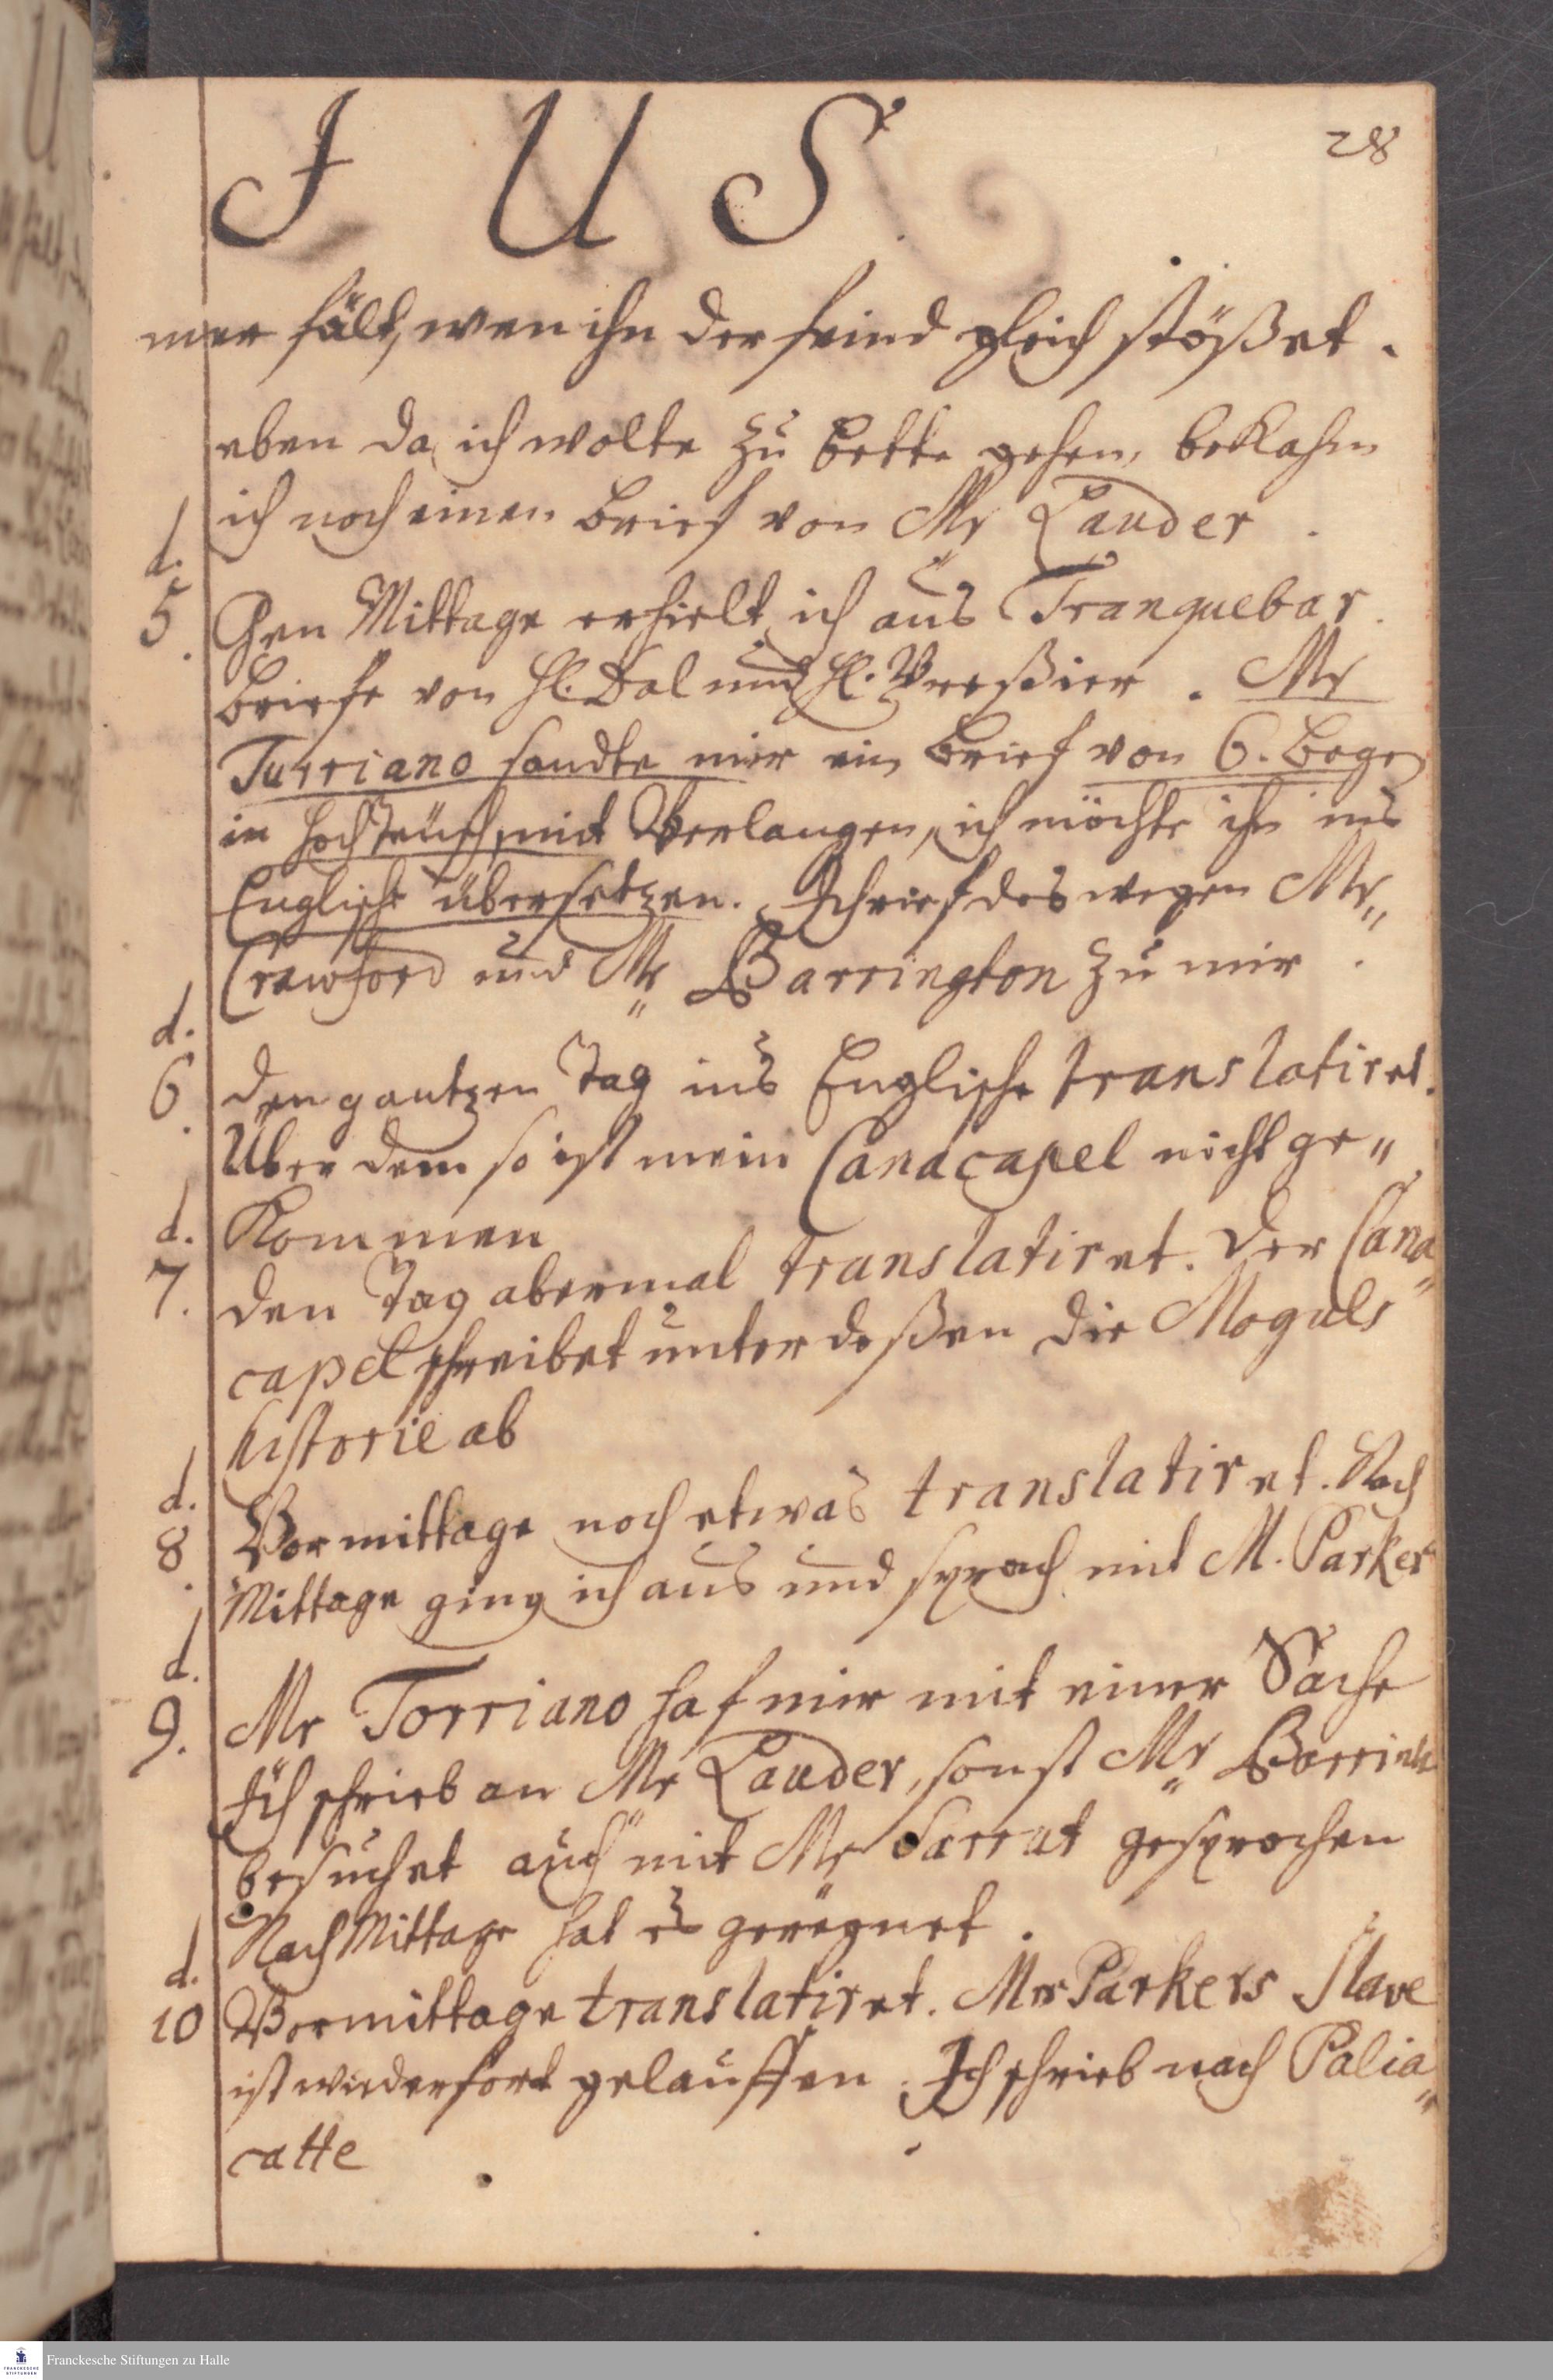 J U S
28
mer fält, wen ihn der feind gleich stößet.
eben da ich wolte zu bette gehen, bekahm
ich noch einen brief von Mr Lauder.
d.
5. Gen Mittage erhielt ich aus Tranquebar.
briefe von H. Dal und H. Preßier. Mr
Turriano sandte mir ein brief von 6. boge
in hochteutsch mit Verlangen, ich möchte ihn ins
Englische übersetzen. Ich rief deswegen Mr
Crawford und Mr Barrington zu mir.
d.
6. den gantzen Tag ins Englische translatiret.
Über dem so ist mein Canacapel nicht ge"
kommen
d.
7. den Tag abermal translatiret. der Cana"
capel schreibet unterdeßen die Moguls
historie ab
d.
8. Vormittage noch etwas translatiret. Nach
Mittage ging ich aus und sprach mit M. Parker
d.
9. Mr Torriano half mir mit einer Sache
Ich schrieb an Mr Lauder, sonst Mr
besuchet auch mit Mr gesprochen
Nach Mittage hat es geregnet.
d.
10 Vormittage translatiret. Mrs Parkers Slave
ist wieder fort gelauffen. Ich schrieb nach Palia"
catte
FRANCKESCHE STIFTUNGEN
Franckesche Stiftungen zu Halle